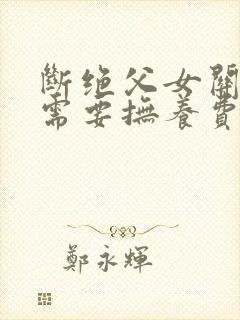 斷絕父女關
需要撫養費
鄭永輝